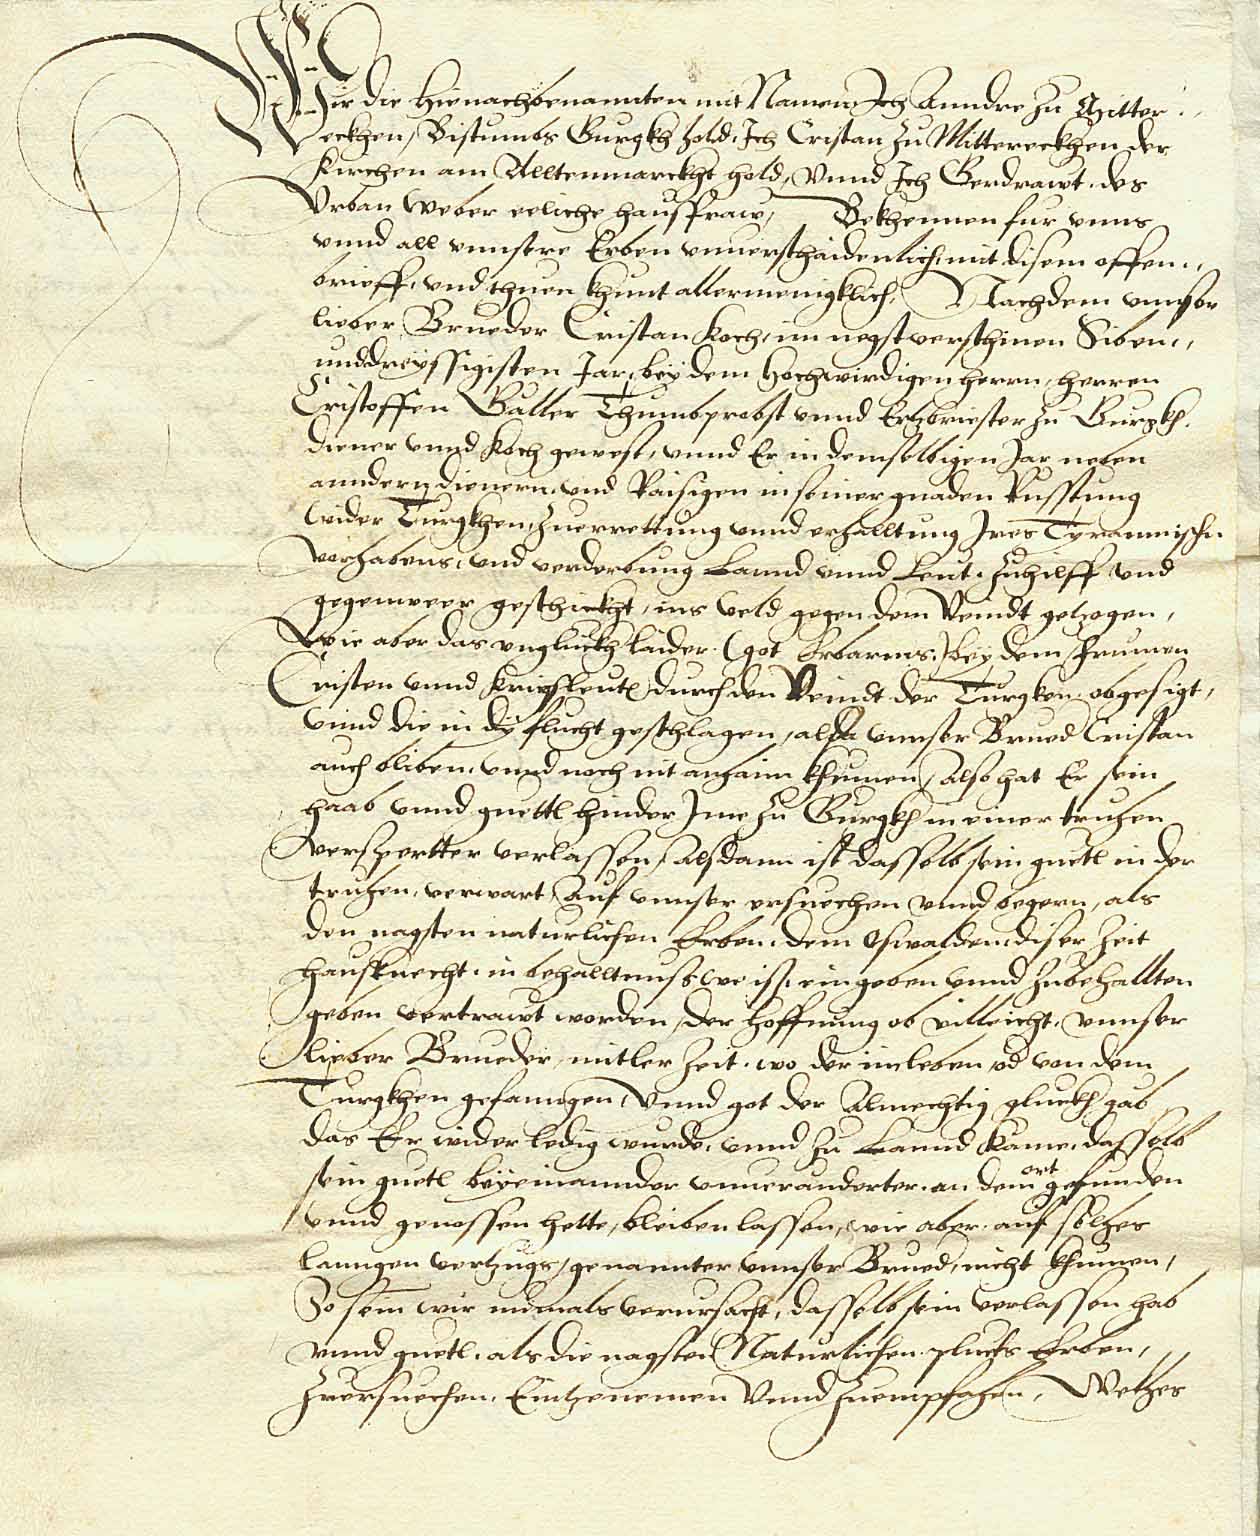 Wir die Hienachbenannten mit Namen Ich Anndre zu Mitter
eckhen, Bistumbs Gurgkh hold, Ich Cristan zu Mittereckhen der
Kirchen am Alltenmarckht hold, Vnnd Ich Gerdrawt des
Vrban Weber eeliche hausfraw, Bekhennen fur vnns
vnnd all vnnsere Erben vnuerschaidenlich, mit disem offen
brieff, vnd thuen khunt allermenigklich, Nachdem vnnser
lieber Brueder Cristan Koch, im negstverschinen Siben
unddreyssigisten Jar, bey dem Hochwirdigen herrn, herren
Cristoffen Galler Thumbprobst vnnd Ertzbriester zu Gurgkh
diener vnnd Koch gewest, vnnd Er in demselbigen Jar neben
anndern dienern, vnd Raisigen in seiner gnaden Russtung
wider Turgkhen, zuerrettung vnnd erhalltung Ires Tyrannischn
vorhabens, vnd verderbung Lannd vnnd Leut, zuhilff vnd
gegenweer geschickht, ins veld gegen dem Veindt getzogen,
Wie aber das vngluckh laider (got Erbarms) bey dem frumen
Cristen vnnd Kriegsleut durch den Veindt der Turgken obgesigt,
vnnd die in dy flucht geschlagen, alda vnnser Brued Cristan
auch bliben, vnnd noch nit anhaim khumen, Also hat Er sein
haab vnnd guettl hinder Ime zu Gurgkh in einer truhen
verspertter verlassen, Alsdann ist dasselb sein guetl in der
truhen, verwart, Auf vnnser ersuechen vnnd begern, als
den nagsten naturlichen Erben, dem Oswalden, diser Zeit
hausknecht, in behalltnusweiss, eingeben vnnd zubehallten
geben vertrawt worden, der hoffnung ob villeicht, vnnser
lieber Brueder, mitler Zeit, wo der im leben, od von dem
Turgkhen gefanngen, Vnnd got der Almechtig gluckh gab
das Er wider ledig wurde, vnnd zu Lannd kame, dasselb
sein guetl beyeinannder vnuerannderter, an dem ort gefunden
vnnd genossen hette, bleiben lassen, wie aber, auf solhes
lanngen vertzugs, genannter vnnser Brued, nicht khumen,
So sein wir nŭmals verursacht, dasselb sein verlassen hab
vnnd guetl, als die nagsten Naturlichen pluets Erben,
zuersuechen, Eintzenemen Vnnd zuempfahen, Welhes